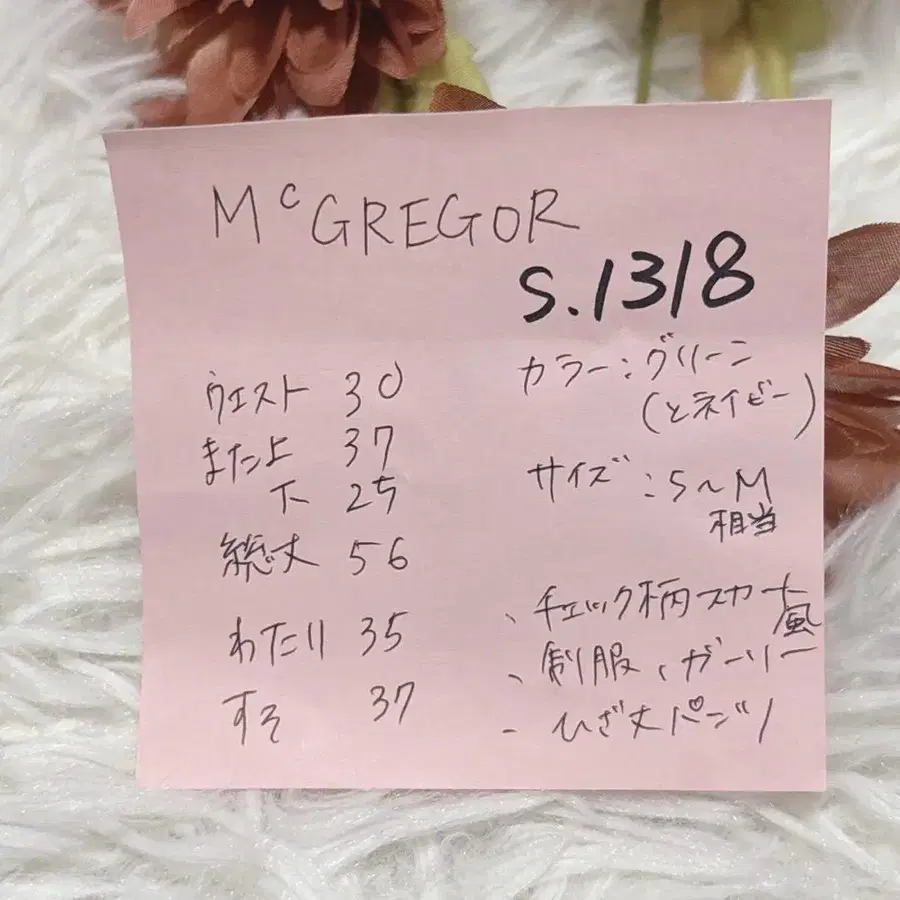 McGREGOR
S.1318
ウエスト 30
また上 37
下 25
総丈 56
わたり 35
すそ 37
カラー：グリーン
（とネイビー）
サイズ：S〜M
相当
、チェック柄スカート
風
、制服、ガーリー
- ひざ丈パンツ